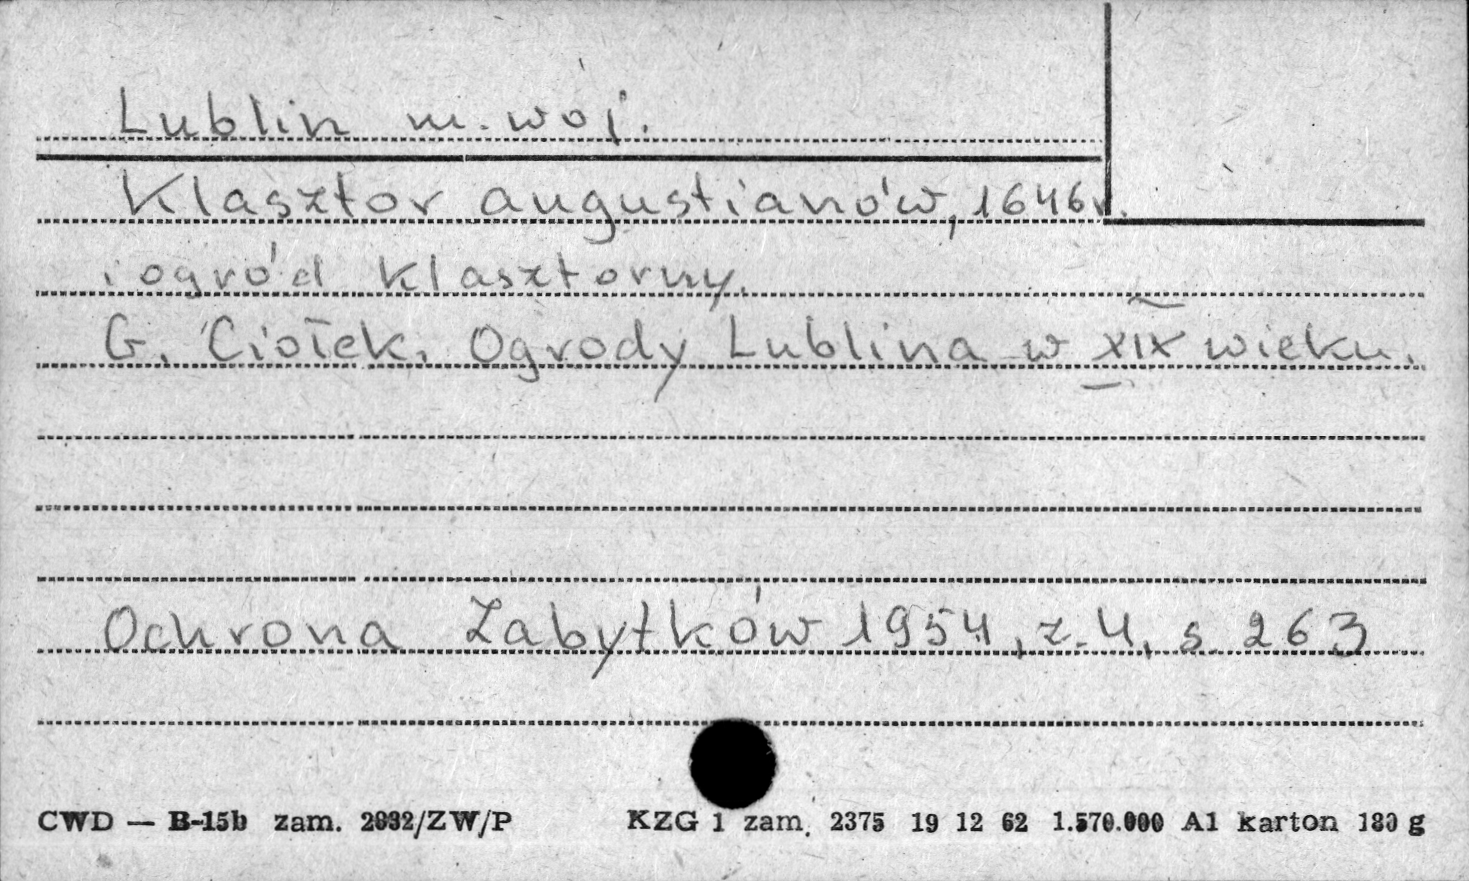 Lublin m. woj.
Klasztor augustianów, 1646 r.
i ogród klasztorny.
G. Ciołek, Ogrody Lublina w XIX wieku.
Ochrona Zabytków 1954, z. 4, s. 263
CWD — B-15b zam. 2032/ZW/P KZG 1 zam. 2375 19 12 62 1.570.000 A1 karton 180 g